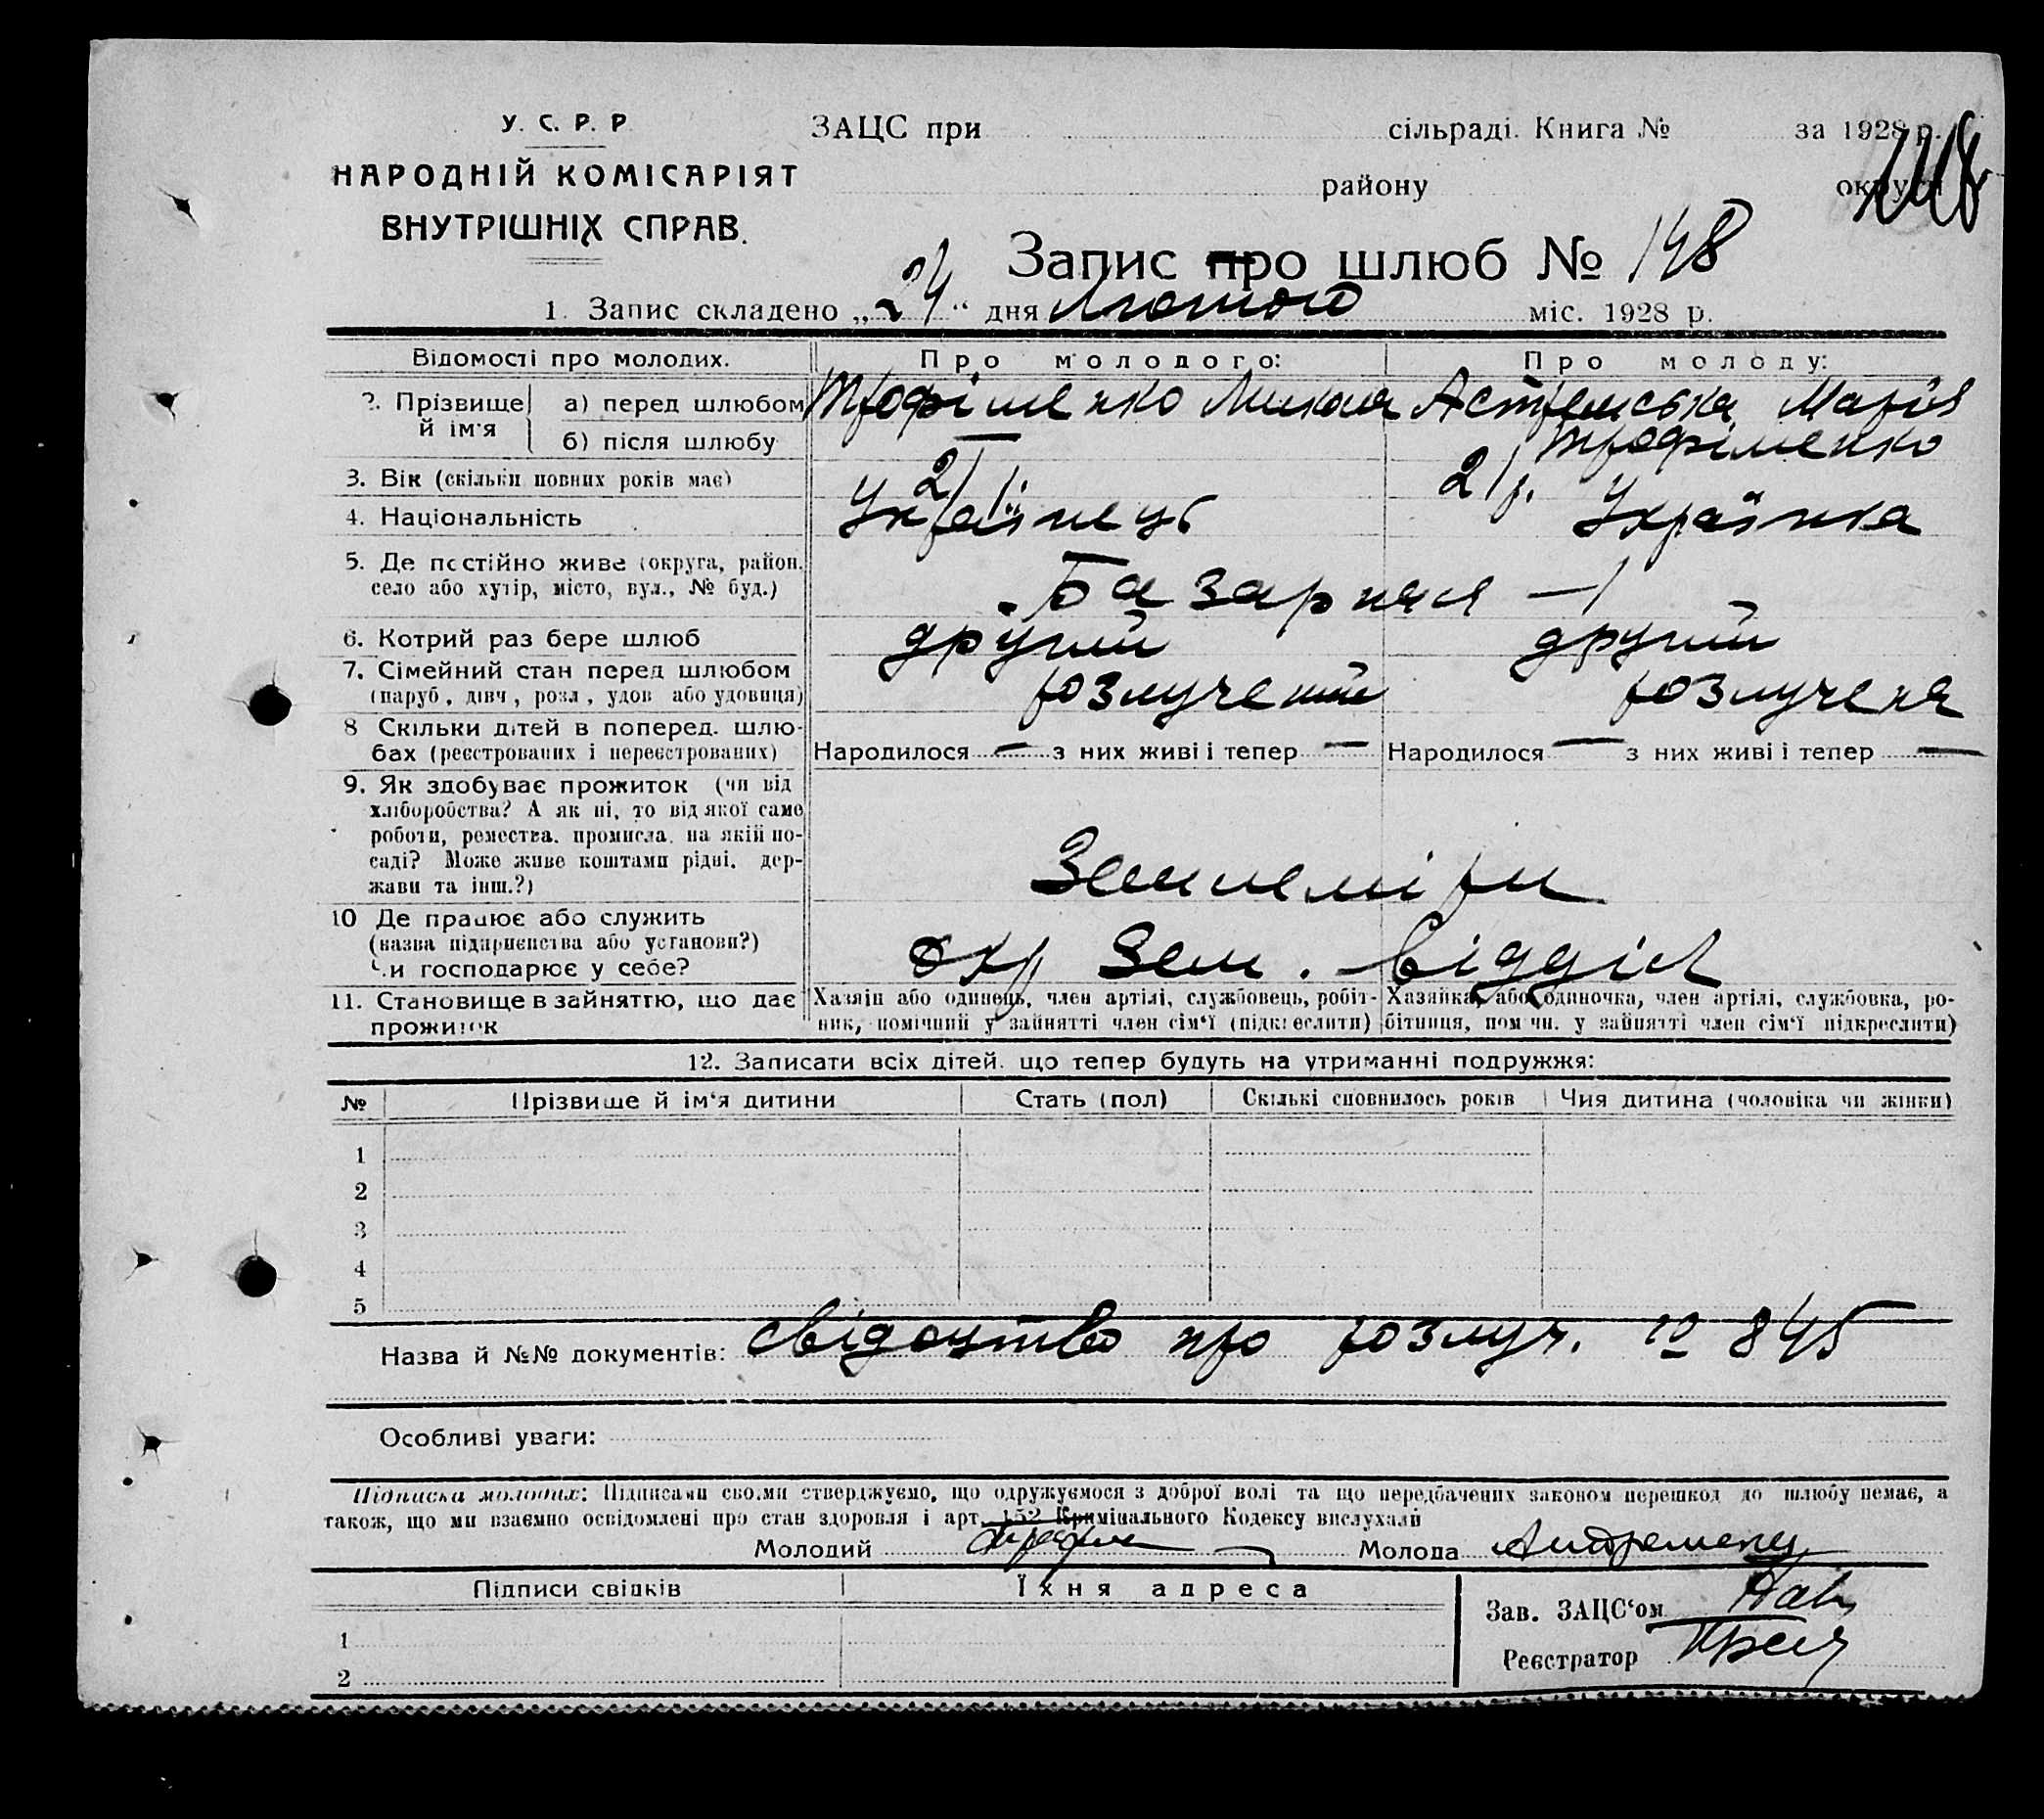 У. С. Р. Р.
НАРОДНІЙ КОМІСАРІЯТ
ВНУТРІШНІХ СПРАВ.
ЗАЦС при сільраді. Книга № за 1928 р.
району округи
148
Запис про шлюб № 148
1. Запис складено „24“ дня Лютого міс. 1928 р.
Відомості про молодих. Про молодого: Про молоду:
2. Прізвище й ім'я а) перед шлюбом Трофіменко Микола Астремська Марія
б) після шлюбу — Трофіменко
3. Вік (скільки повних років має) 21 21 р.
4. Національність Українець Українка
5. Де постійно живе (округа, район, село або хутір, місто, вул., № буд.) Базарная —1
6. Котрий раз бере шлюб другий другий
7. Сімейний стан перед шлюбом (паруб., дівч., розл., удов. або удовиця) розлучений розлучена
8 Скільки дітей в поперед. шлюбах (реєстрованих і нереєстрованих) Народилося — з них живі і тепер — Народилося — з них живі і тепер —
9. Як здобуває прожиток (чи від
хліборобства? А як ні, то від якої саме
роботи, ремества, промисла, на якій по-
саді? Може живе коштами рідні, дер-
жави та інш.?) Землеміри
10 Де працює або служить
(назва підприємства або установи?)
Чи господарює у себе? Окр Зем. Відділ
11. Становище в зайняттю, що дає прожиток
Хазяїн або одинець, член артілі, службовець, робіт-
ник, помічний у зайнятті член сім'ї (підкреслити)
Хазяйка, або одиночка, член артілі, службовка, ро-
бітниця, помічн. у зайнятті член сім'ї підкреслити)
12. Записати всіх дітей, що тепер будуть на утриманні подружжя:
№ Прізвище й ім'я дитини Стать (пол) Скількі сповнилось років Чия дитина (чоловіка чи жінки)
1
2
3
4
5
Назва й №№ документів: свідоцтво про розлуч. № 845
Особливі уваги:
Підписка молодих: Підписами своїми стверджуємо, що одружуємося з доброї волі та що передбачених законом перешкод до шлюбу немає, а
також, що ми взаємно освідомлені про стан здоровля і арт. 152 Кримінального Кодексу вислухали
Молодий Молода
Підписи свідків Їхня адреса
Зав. ЗАЦС'ом
1
Реєстратор
2